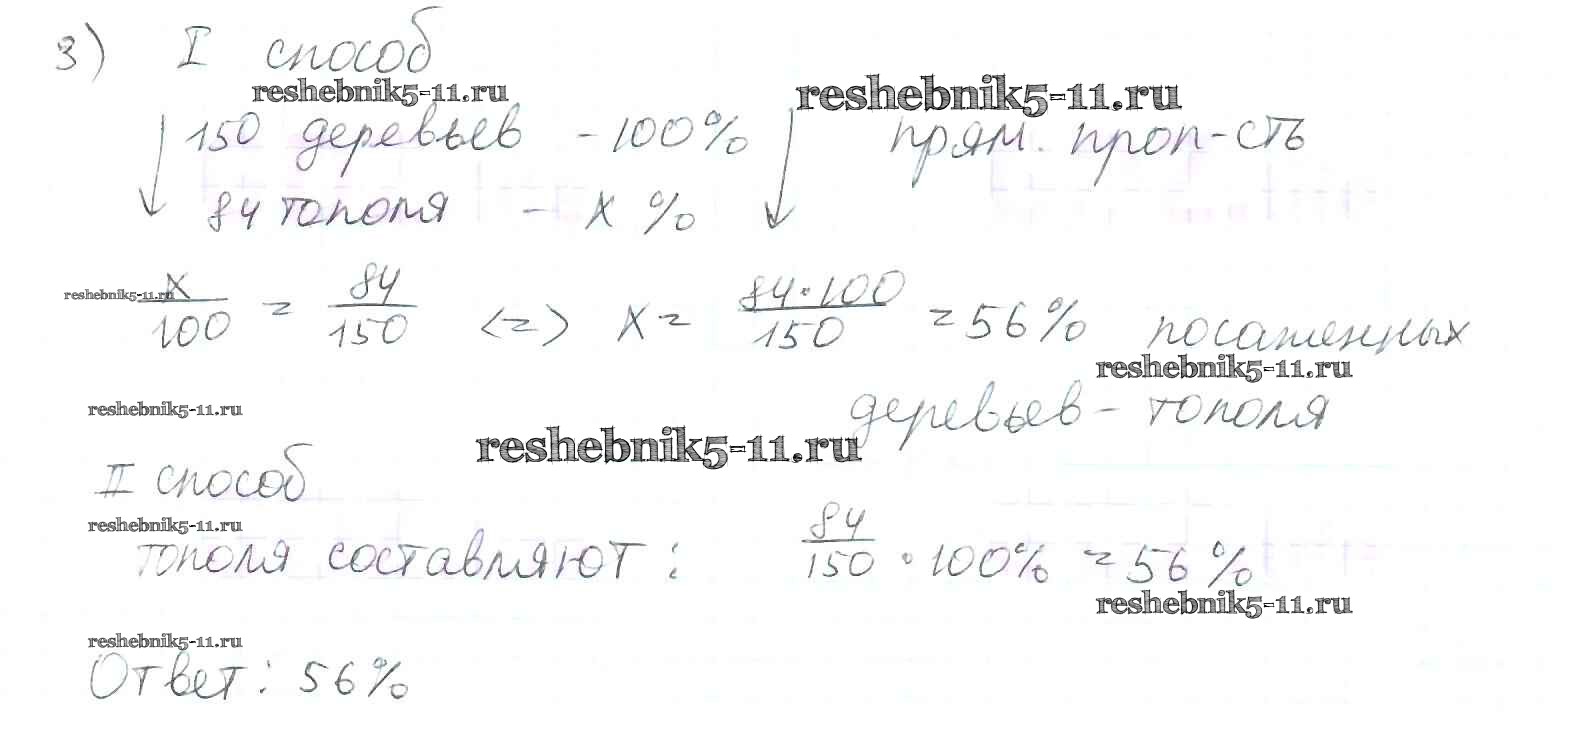 3) I способ
reshebnik5-11.ru reshebnik5-11.ru
150 деревьев - 100% прям. проп-сть
84 тополя - x %
reshebnik5-11.ru
x/100 = 84/150 <=> x = 84·100/150 = 56% посаженных
reshebnik5-11.ru
reshebnik5-11.ru деревьев - тополя
reshebnik5-11.ru
II способ
reshebnik5-11.ru
тополя составляют: 84/150 · 100% = 56%
reshebnik5-11.ru
reshebnik5-11.ru
Ответ: 56%